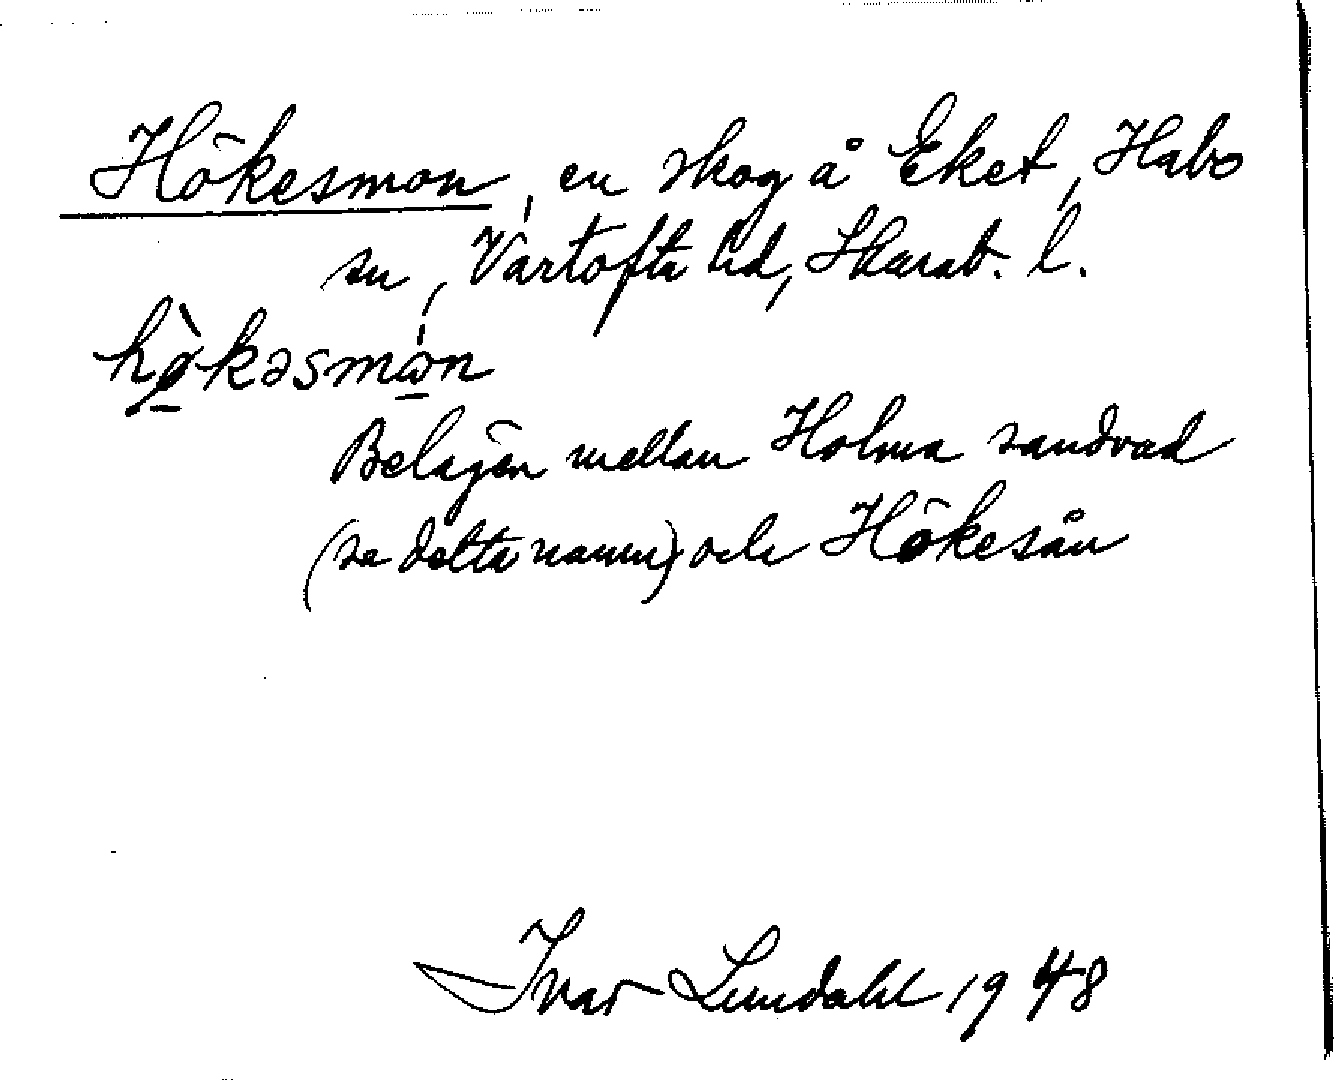 Hökesmon, en skog å Eket, Habo
sn, Vartofta hd, Skarab. l.
hø̀kəsmón
Belägen mellan Holma sandvad
(se detta namn) och Hökesån
Ivar Lundahl 1948